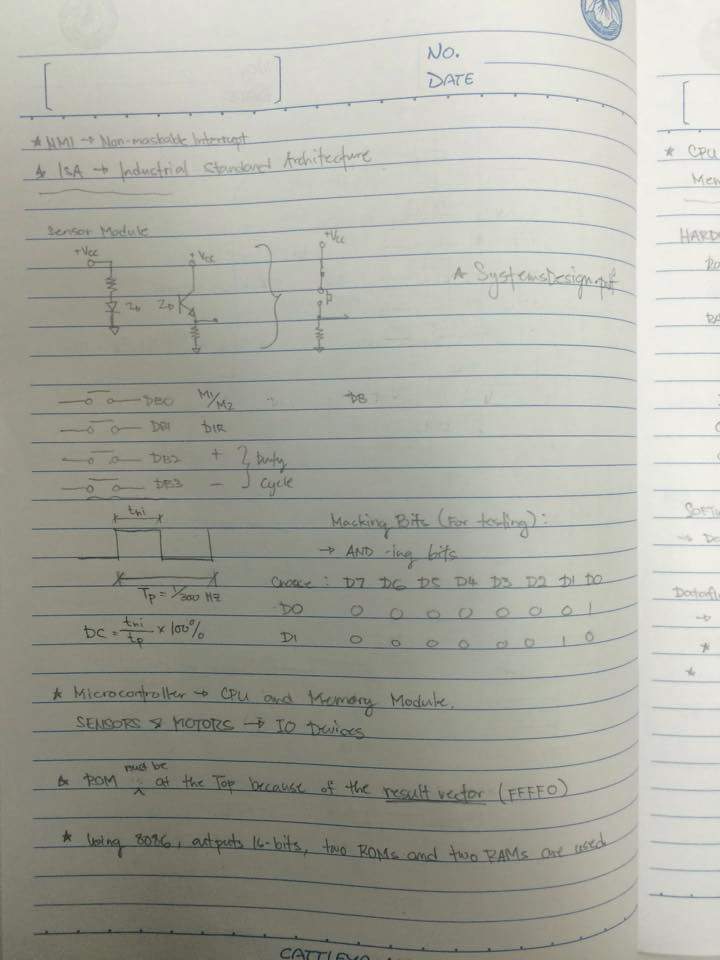 NO.
DATE
* NMI → Non-maskable Interrupt
* ISA → Industrial Standard Architecture
Sensor Module
+Vcc
+Vcc
+Vcc
* SystemsDesign.ppt
DB0 M1/M2 DB
DB1 DIR
DB2 + } Duty
DB3 - Cycle
thi
Tp = 1/300 Hz
DC = thi/tp × 100%
Macking Bits (For testing) :
→ AND -ing bits
Choose : D7 D6 D5 D4 D3 D2 D1 D0
D0 0 0 0 0 0 0 0 1
D1 0 0 0 0 0 0 1 0
* Microcontroller → CPU and Memory Module.
SENSORS & MOTORS → IO Devices
* ROM must be at the Top because of the result vector (FFFF0)
* Using 8086, outputs 16-bits, two ROMs and two RAMs are used
CATTLEYA
* CPU
Mem
HARD